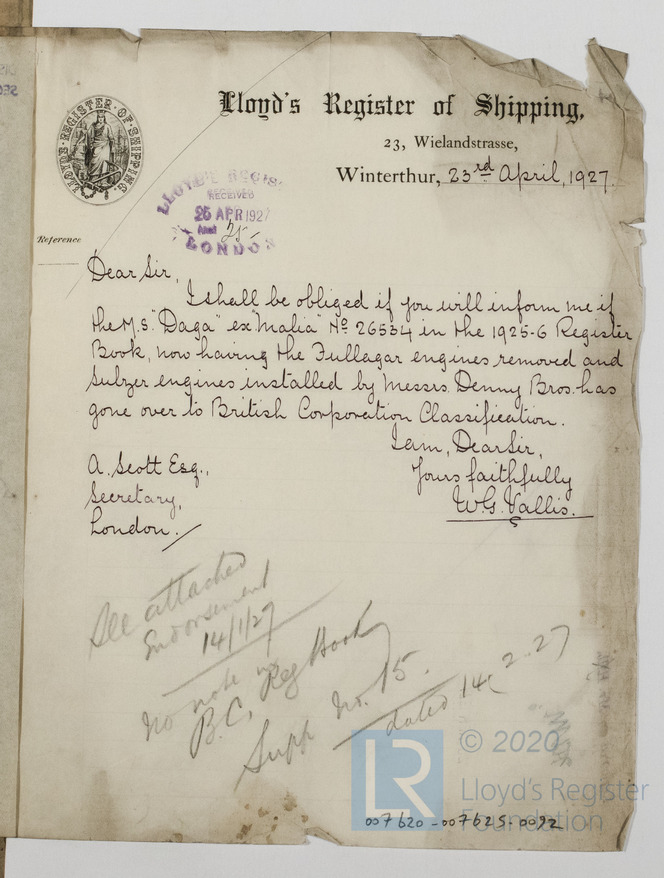 LLOYD'S·REGISTER·OF·SHIPPING·
Lloyd's Register of Shipping,
23, Wielandstrasse,
Winterthur, 23rd April, 1927.
LLOYD'S REGIS
RECEIVED
26 APR 1927
LONDON
Reference
Dear Sir,
I shall be obliged if you will inform me if
the M.S. "Daga" ex "Malia" No 26534 in the 1925-6 Register
Book, now having the Fullagar engines removed and
Sulzer engines installed by Messrs. Denny Bros. has
gone over to British Corporation Classification.
I am, Dear Sir,
Yours faithfully
W.G. Vallis.
A. Scott Esq.,
Secretary,
London.
See attached
Endorsement
14/1/27
No note in
B.C. Reg Book
Supp No. 15.
dated 14.2.27
LR
© 2020
Lloyd's Register
Foundation
007620-007625-0092